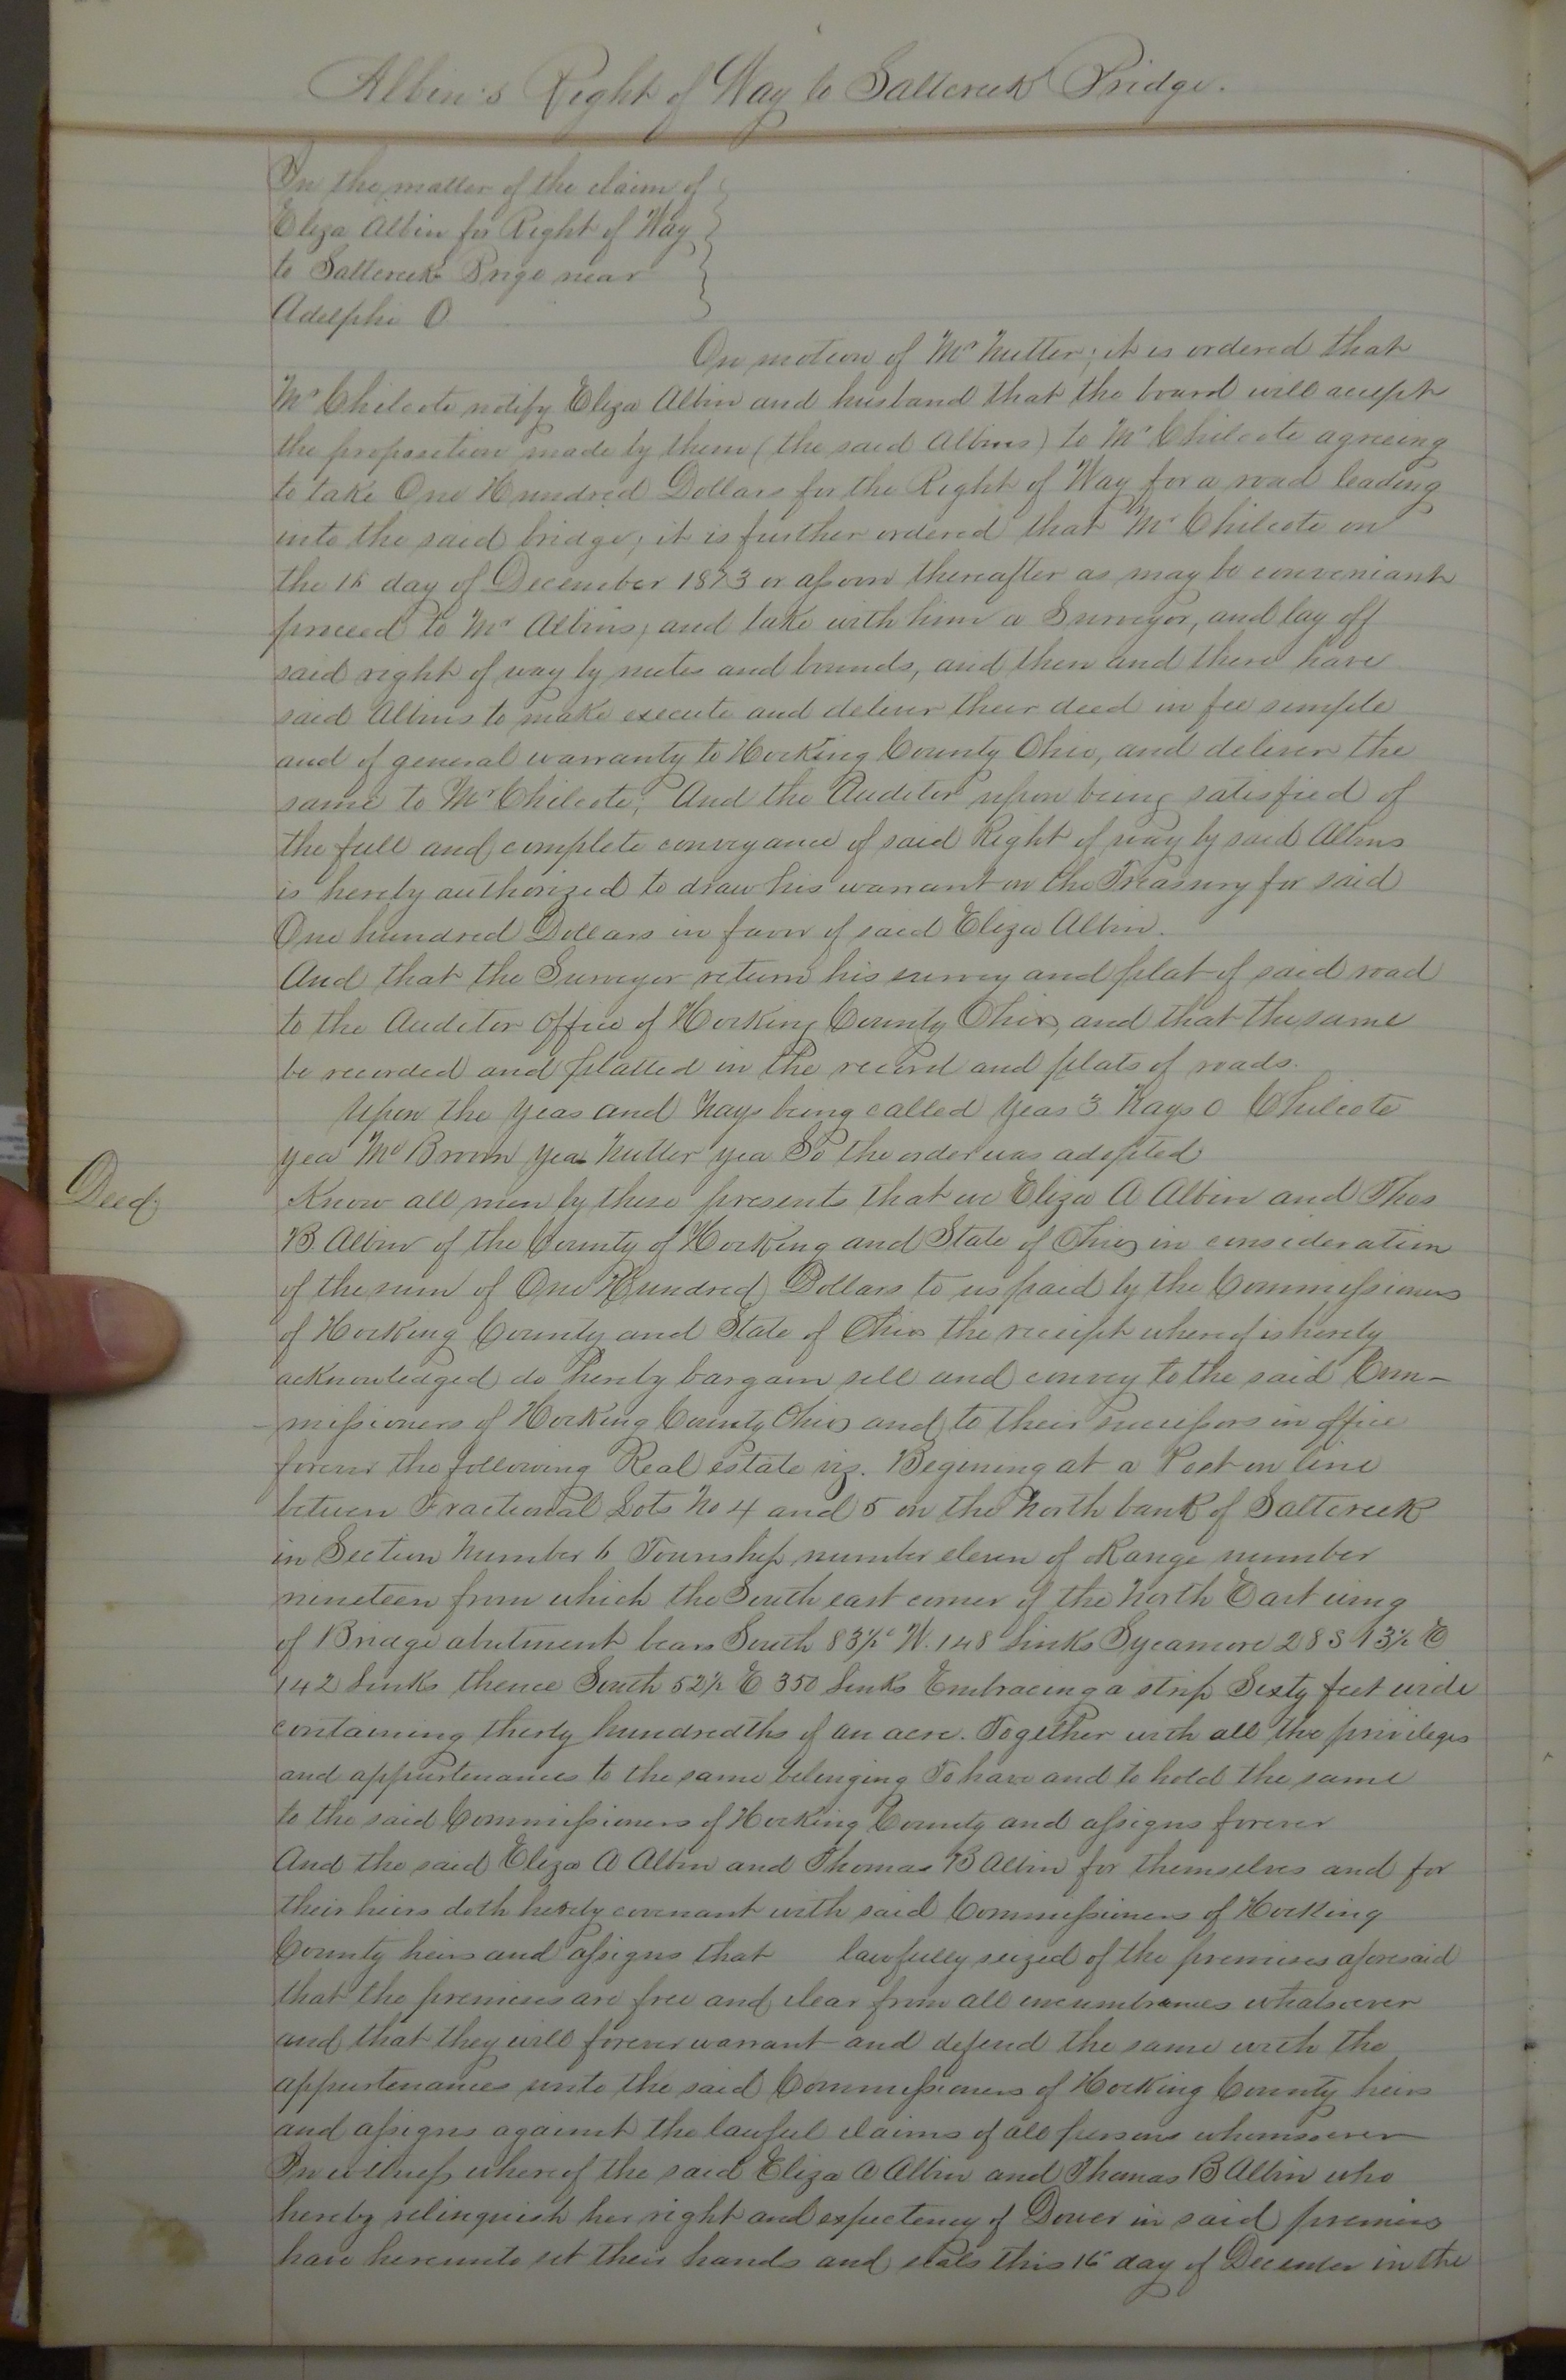 Albin's Right of Way to Saltcreek Bridge.
In the matter of the claim of
Eliza Albin for Right of Way
to Saltcreek Brige near
Adelphi O
On motion of Mr Nutter; it is ordered that
Mr Chilcote notify Eliza Albin and husband that the board will accept
the proposition made by them (the said Albins) to Mr Chilcote agreeing
to take One Hundred Dollars for the Right of Way for a road leading
into the said bridge; it is further ordered that Mr Chilcote on
the 16 day of December 1873 or assoon thereafter as may be conveniant
proceed to Mr Albins, and take with him a Surveyor, and lay off
said right of way by metes and bounds, and then and there have
said Albins to make execute and deliver their deed in fee simple
and of general warranty to Hocking County Ohio, and deliver the
same to Mr Chilcote; And the Auditor upon being satisfied of
the full and complete conveyance of said Right of way by said Albins
is hereby authorized to draw his warrant on the Treasury for said
One hundred Dollars in favor of said Eliza Albin.
And that the Surveyor return his survey and plat of said road
to the Auditor office of Hocking County Ohio, and that the same
be recorded and platted in the record and plats of roads.
Upon the Yeas and Nays being called Yeas 3 Nays 0 Chilcote
yea McBroom yea Nutter yea So the order was adopted
Deed
Know all men by these presents that we Eliza A Albin and Thos
B. Albin of the County of Hocking and State of Ohio in consideration
of the sum of One Hundred Dollars to us paid by the Commissioners
of Hocking County and State of Ohio the receipt whereof is hereby
acknowledged do hereby bargain sell and convey to the said Com-
-missioners of Hocking County Ohio and to their successors in office
forever the following Real estate viz. Begining at a Post on line
between Fractional Lots No 4 and 5 on the North bank of Saltcreek
in Section Number 6 Township number eleven of Range number
nineteen from which the South east corner of the North East wing
of Bridge abutment bears South 83½° W. 148 links Sycamore 28 S 13½ E
142 Links thence South 52½ E 350 Links Embracing a strip Sixty feet wide
containing thirty hundredths of an acre. Together with all the privileges
and appurtenances to the same belonging To have and to hold the same
to the said Commissioners of Hocking County and assigns forever
And the said Eliza A Albin and Thomas B Albin for themselves and for
their heirs doth hereby covenant with said Commissioners of Hocking
County heirs and assigns that lawfully seized of the premises aforesaid
that the premises are free and clear from all incumbrances whatsoever
and that they will forever warrant and defend the same with the
appurtenances unto the said Commissioners of Hocking County heirs
and assigns against the lawful claims of all persons whomsoever
In witness whereof the said Eliza A Albin and Thomas B Albin who
hereby relinquish her right and expectency of Dower in said premises
have hereunto set their hands and seals this 16 day of December in the